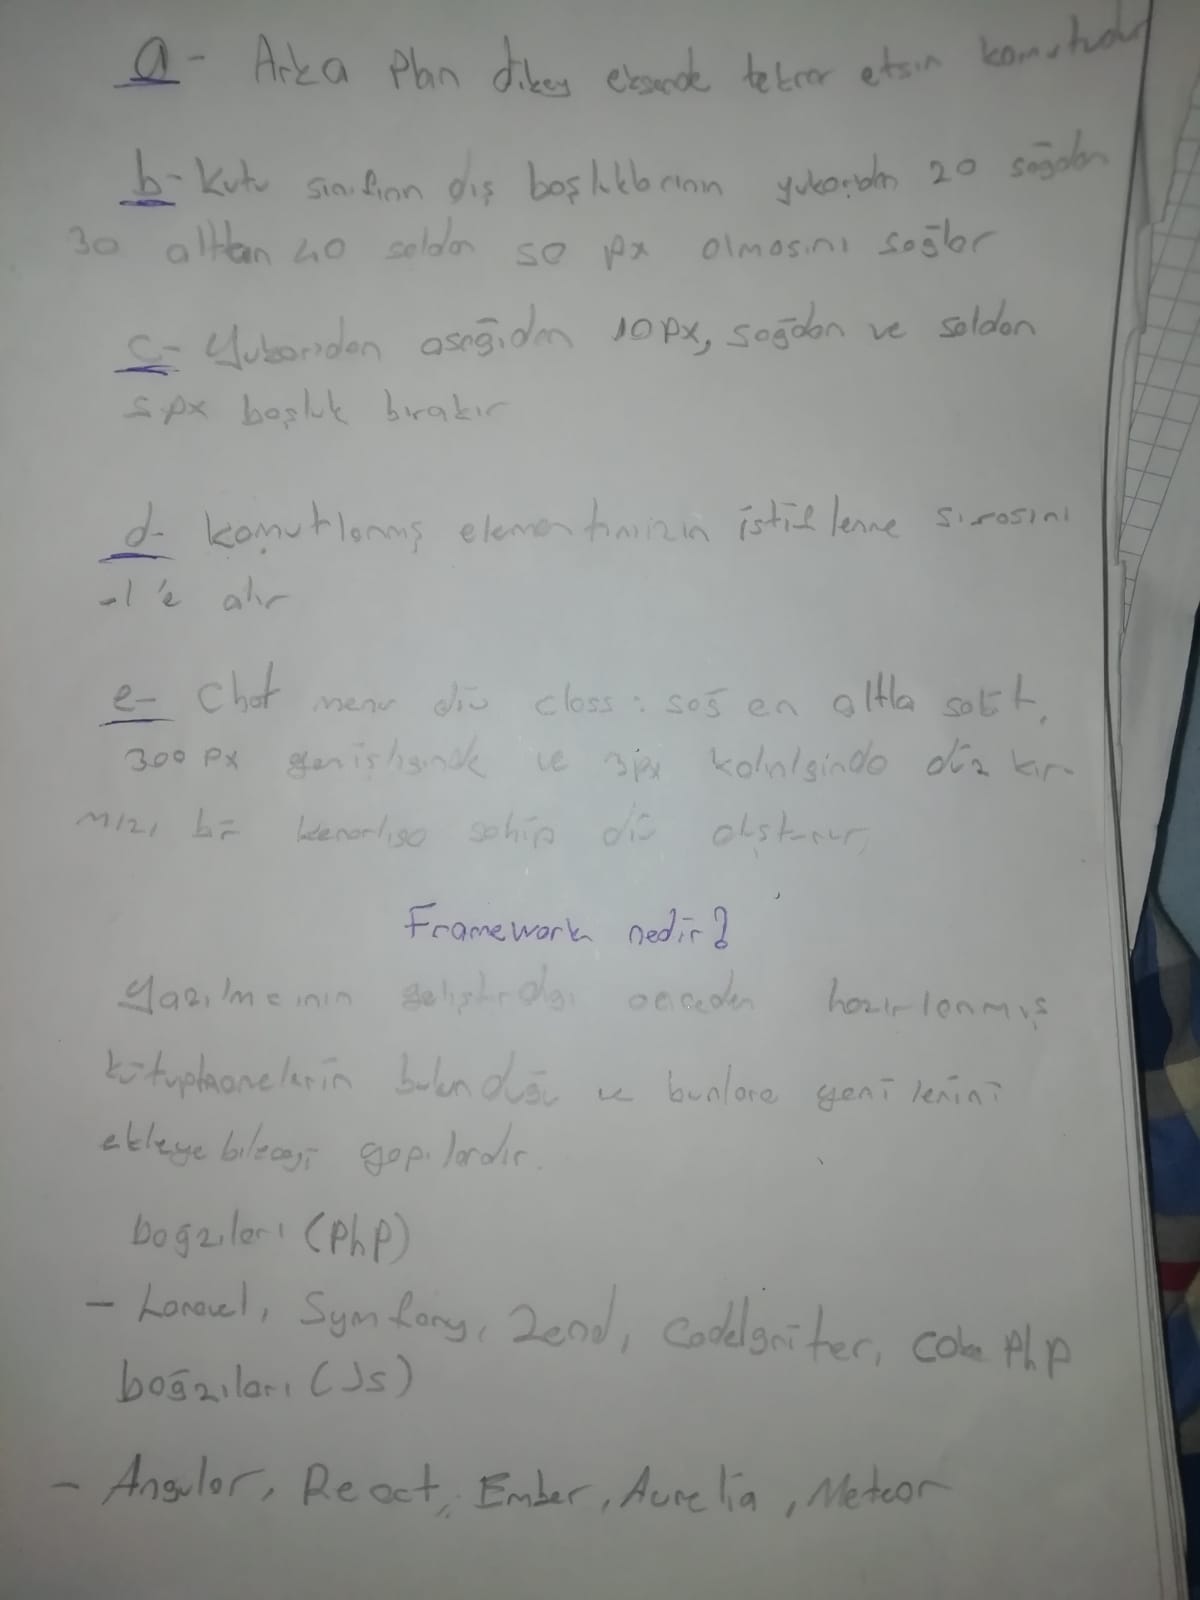 a- Arka Plan dikey eksende tekrar etsin komutudur
b- Kutu sınıfının dış boşluklarının yukarıdan 20 sağdan
30 alttan 40 soldan 50 px olmasını sağlar
c- Yukarıdan aşağıdan 10px, sağdan ve soldan
5 px boşluk bırakır
d- komutlanmış elementimizin istiflenme sırasını
-1'e alır
e- Chat menu div class: sağ en altta sabit,
300 px genişliğinde ve 3px kalınlığında düz kır-
mızı bir kenarlığa sahip div oluşturur,
Framework nedir?
Yazılımcının geliştirdiği önceden hazırlanmış
kütüphanelerin bulunduğu ve bunlara yenilerini
ekleyebileceği yapılardır.
bağzıları (PhP)
- Laravel, Symfony, Zend, CodeIgniter, Cake PhP
bağzıları (Js)
- Angular, React, Ember, Aurelia, Meteor